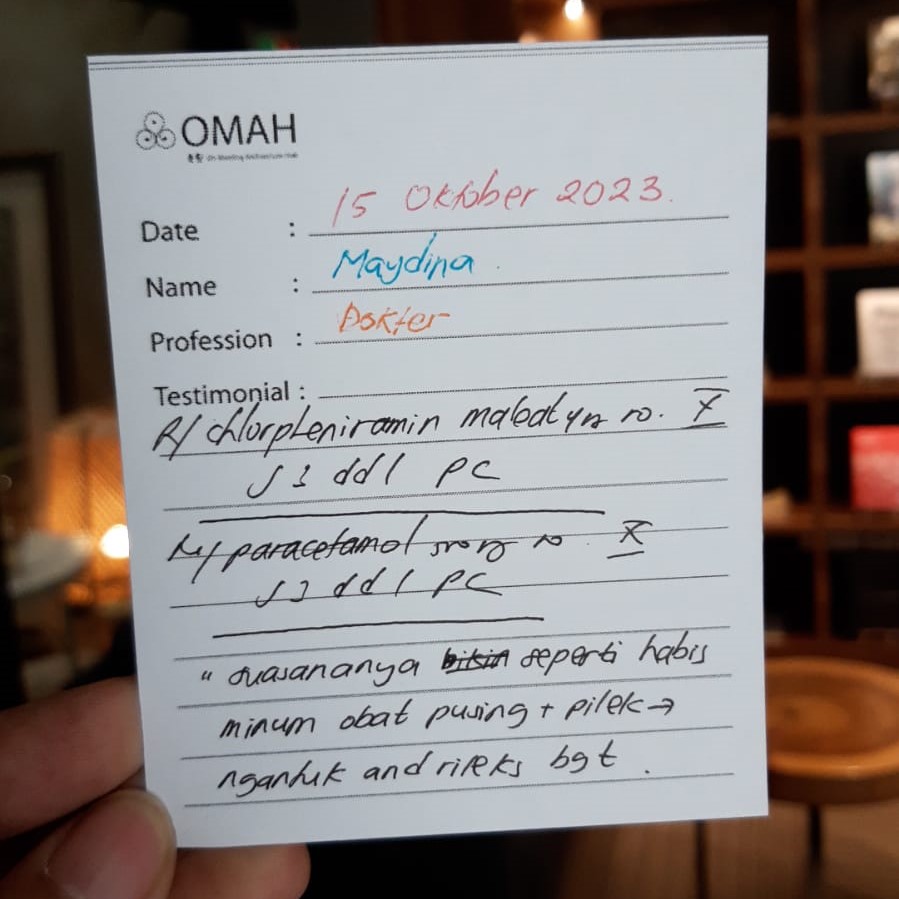 OMAH
Date : 15 Oktober 2023.
Name : Maydina
Profession : Dokter
Testimonial :
R/ chlorpheniramin maleat no. X
S 3 dd 1 pc
R/ paracetamol no. X
S 3 dd 1 pc
" suasananya bikin seperti habis
minum obat pusing + pilek →
ngantuk and rileks bgt .